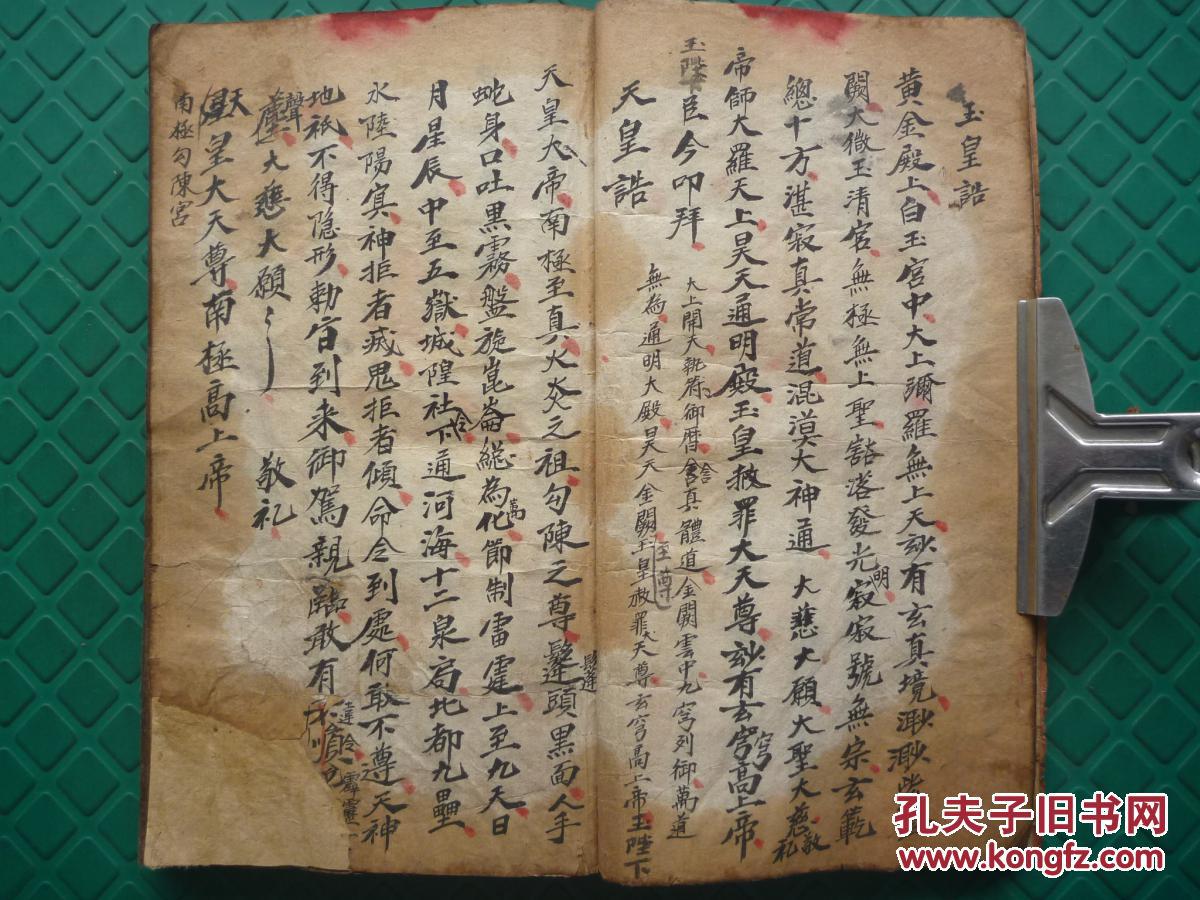 玉皇誥
黄金殿上白玉宮中大上彌羅無上天玅有玄真境渺渺紫
闕大微玉清宮無極無上聖豁落發光明寂寂號無宗玄範
總十方湛寂真常道混漠大神通 大慈大願大聖大慈敬礼
帝師大羅天上昊天通明殿玉皇赦罪大天尊玅有玄穹高上帝
玉陛下臣今叩拜
大上開天執符御曆含真體道金闕雲中九穹列御萬道
無為通明大殿昊天金闕至尊玉皇赦罪大天尊玄穹高上帝玉陛下
天皇誥
天皇九帝南極至真火炎之祖勾陳之尊鬅頭黑面人手
蛇身口吐黑霧盤旋崑崙總為萬化節制雷霆上至九天日
月星辰中至五嶽城隍社令下通河海十二泉局北都九壘
水陸陽寘神拒者滅鬼拒者傾命令到處何敢不尊天神
地祇不得隐形勅旨到来御駕親臨敢有違令霹靂一
聲大慈大願 敬礼
天皇大天尊南極高上帝
南極勾陳宮
孔夫子旧书网
www.kongfz.com